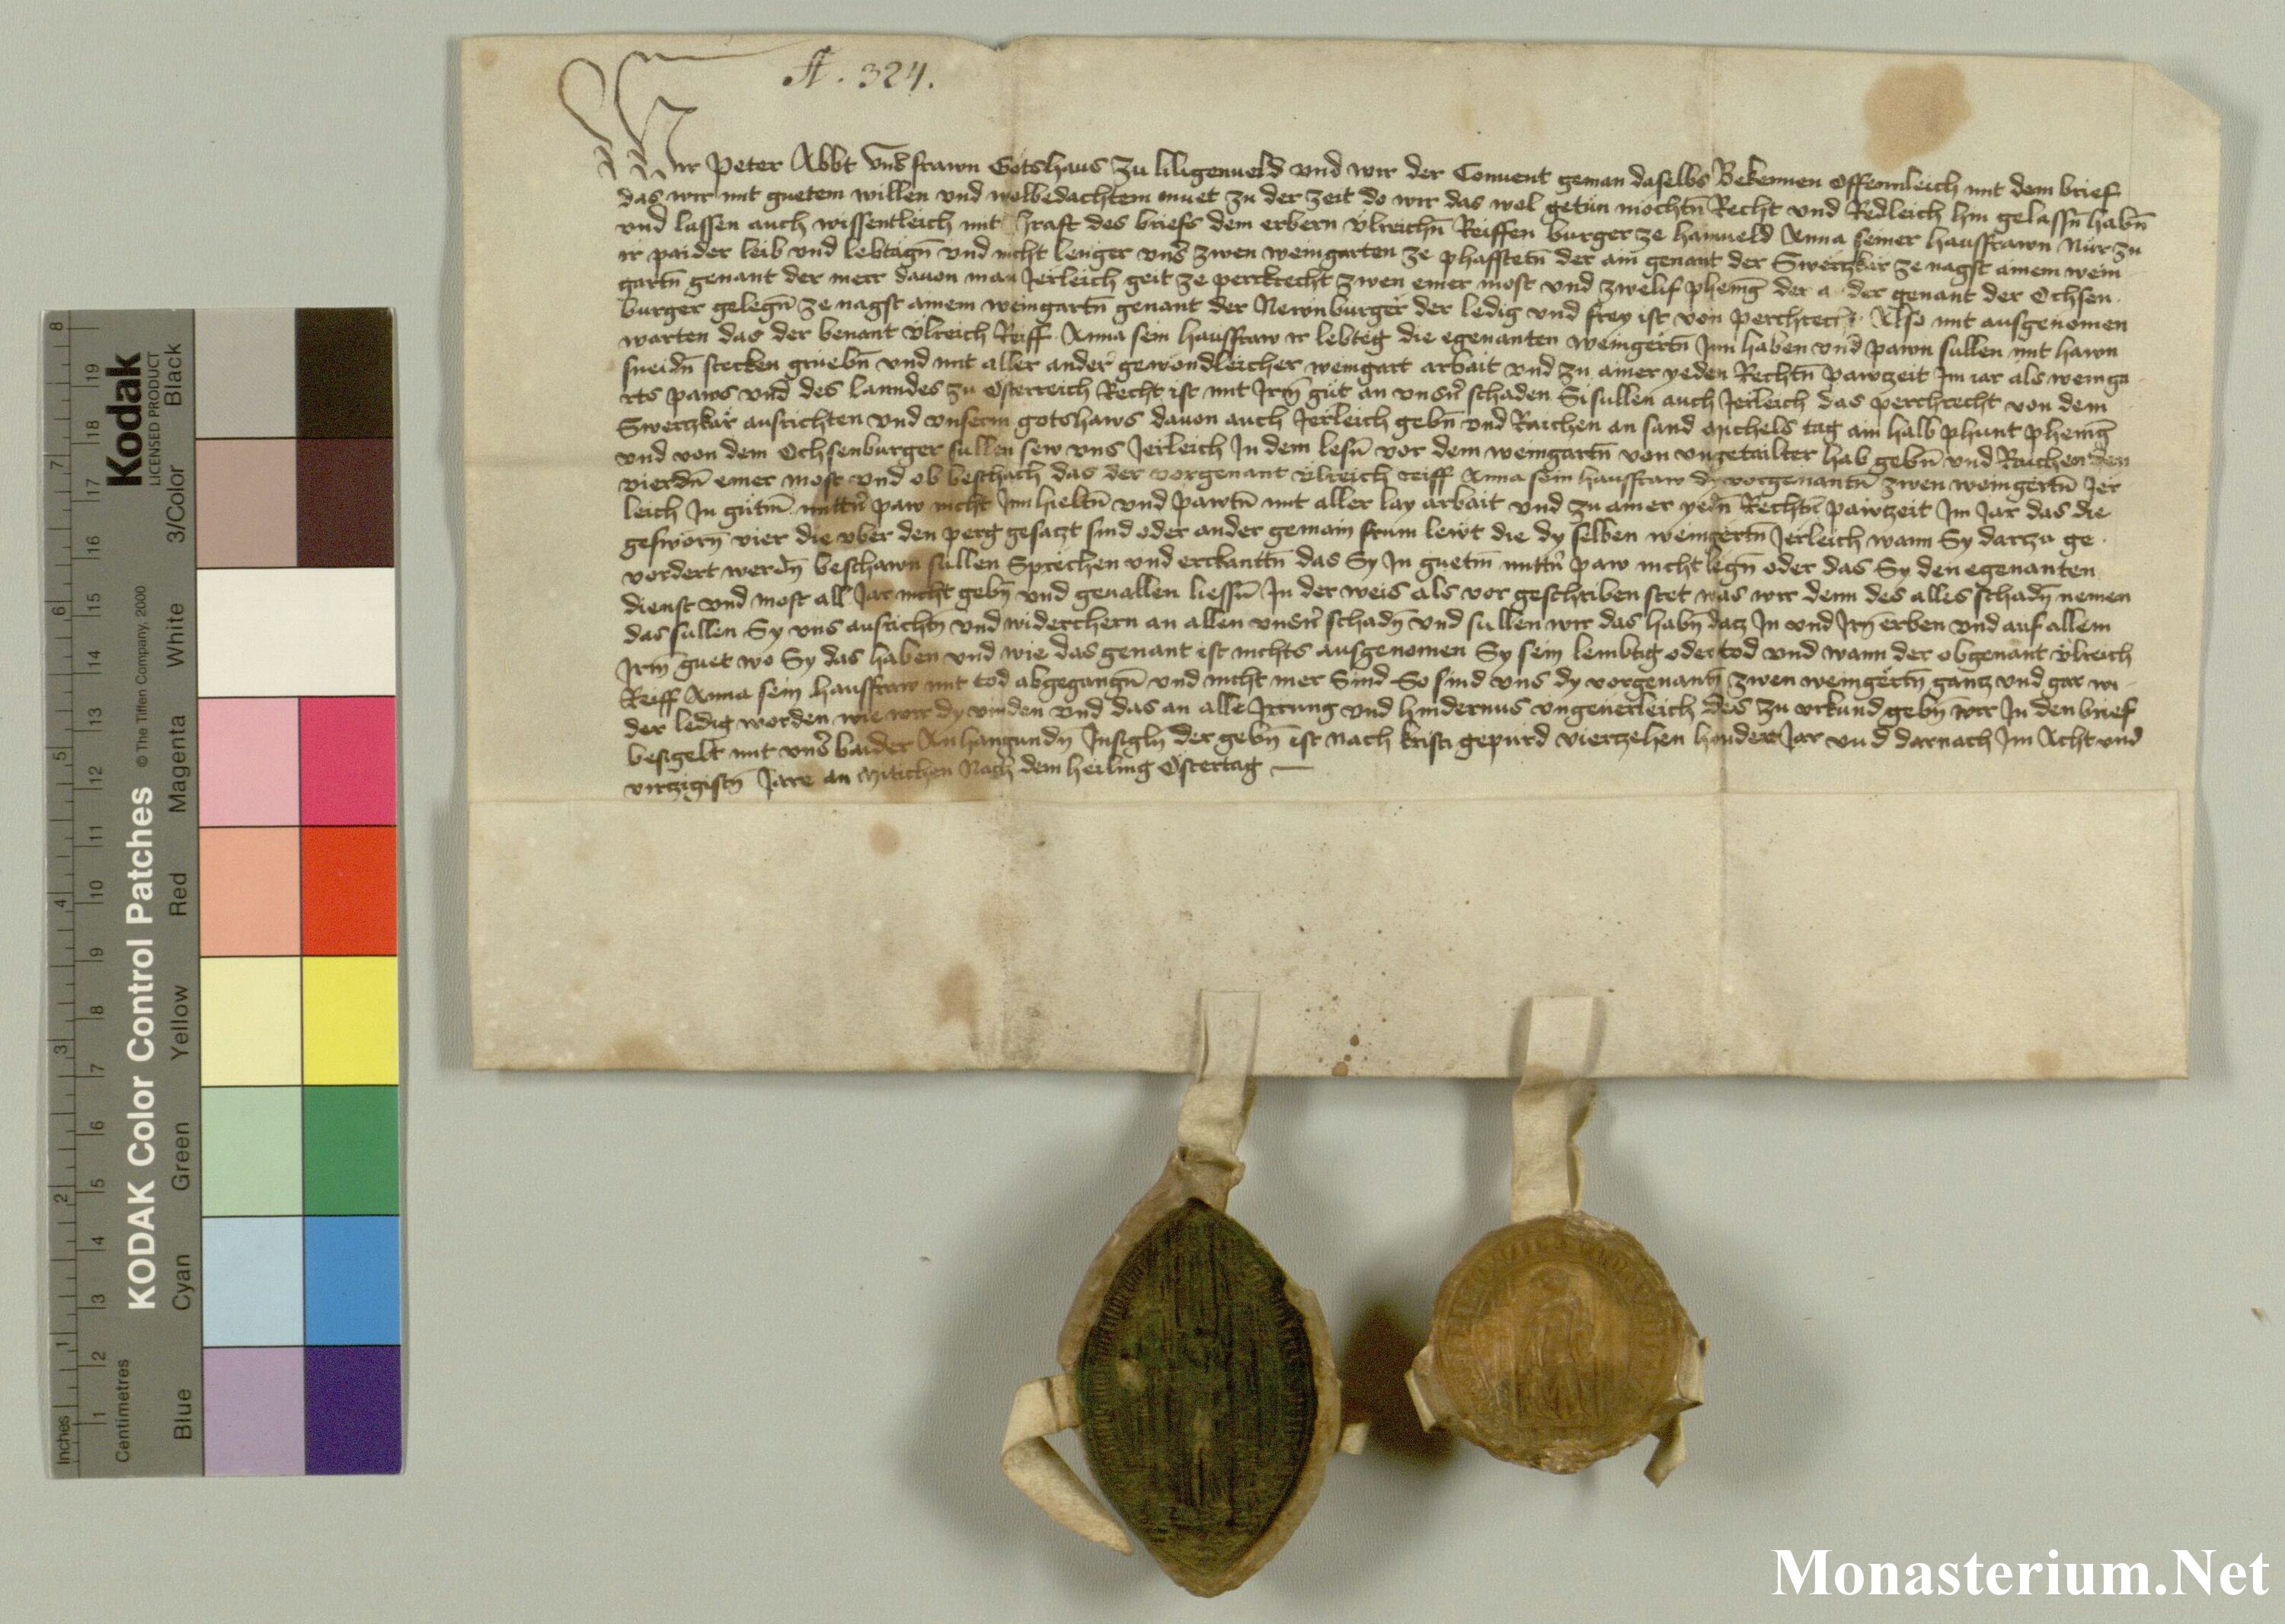 A. 324.
Wir Peter Abbt vnſ frawn Gotshaus zu liligenueld vnd wir der Conuent geman daselbs Bekennen offennleich mit dem brief
das wir mit guetem willen vnd wolbedachtem muet zu der zeit do wir das wol getün mochtn̄ Recht vnd Redleich hin gelassn̄ habn̄
vnd lassen auch wissentleich mit kraft des briefs dem erbern vlreichn̄ Reiffen burger ze hanueld Anna seiner hausfrawn Nür zu
ir paider leib vnd lebtagn̄ vnd nicht lenger vnſ zwen weingarten ze phaffstetn̄ der ain genant der Swerczkär ze nagst ainem wein
gartn̄ genant der merr dauon man Jerleich geit ze perckrecht zwen emer most vnd zwelif pheniḡ der a der genant der Ochsen
burger gelegn̄ ze nagst ainem weingartn̄ genant der Newnburger der ledig vnd frey ist von perchrecht Also mit ausgenomen
warten das der benant vlreich Reiff Anna sein hausfraw ir lebteg die egenanten weingertn̄ Inn haben vnd pawn sullen mit hawn
sneidn̄ stecken gruebn̄ vnd mit aller ander gewondleicher weingart arbait vnd zu ainer yeden Rechtn̄ pawzeit Im iar als weinga
rts paws vnd des lanndes zu Osterreich Recht ist mit Irm̄ gut an vnsn̄ schaden Si sullen auch Jerleich das perchrecht von dem
Swerczkär ausrichten vnd vnserm gotshaws dauon auch Jerleich gebn̄ vnd Raichen an sand Michels tag ain halb phunt pheniḡ
vnd von dem Ochsenburger sullen sew vns Jerleich In dem lesn̄ vor dem weingartn̄ von vngetailter hab gebn̄ vnd Raichen den
vierdn̄ emer most vnd ob beschach das der vorgenant vlreich reiff Anna sein hausfraw dy vorgenantn̄ zwen weingertn̄ Jer
leich In gutm̄ mittn̄ paw nicht Inn hieltn̄ vnd pawtn̄ mit aller lay arbait vnd zu ainer yedn̄ Rechtn̄ pawzeit Im Jar das die
gesworn̄ vier die vber den perg gesaczt sind oder ander gemain frum lewt die dy selben weingertn̄ Jerleich wann Sy darzu ge
vordert werdn̄ beschawn sullen Sprechen vnd erckanttn̄ das Sy In guetm̄ mittn̄ paw nicht legn̄ oder das Sy den egenanten
dienst vnd most all Jar nicht gebn̄ vnd geuallen liessn̄ In der weis als vor geschriben stet was wir denn des alles schadn̄ nemen
das sullen Sy vns ausrichtn̄ vnd widerchern an allen vnsn̄ schadn̄ vnd sullen wir das habn̄ datz In vnd Irn̄ erben vnd auf allem
Irm̄ guet wo Sy das haben vnd wie das genant ist nichts ausgenomen Sy sein lembtig oder tod vnd wann der obgenant vlreich
Reiff Anna sein hausfraw mit tod abgegangn̄ vnd nicht mer Sind So sind vns dy vorgenantn̄ zwen weingertn̄ gantz vnd gar wi
der ledig worden wie wir dy vinden vnd das an alle Irrung vnd hindernus vngeuerleich Des zu vrkund gebn̄ wir In den brief
besigelt mit vnſ baider Anhangundn̄ Insigln̄ der gebn̄ ist nach kristi gepurd vierzehen hundert Jar vnd darnach Im Acht vnd
virtzigistn̄ Jare an Mitichen Nach dem heiling Ostertag
Kodak
LICENSED PRODUCT
KODAK Color Control Patches
© The Tiffen Company, 2000
Black
3/Color
White
Magenta
Red
Yellow
Green
Cyan
Blue
Inches
1 2 3 4 5 6 7 8
Centimetres
1 2 3 4 5 6 7 8 9 10 11 12 13 14 15 16 17 18 19
Monasterium.Net